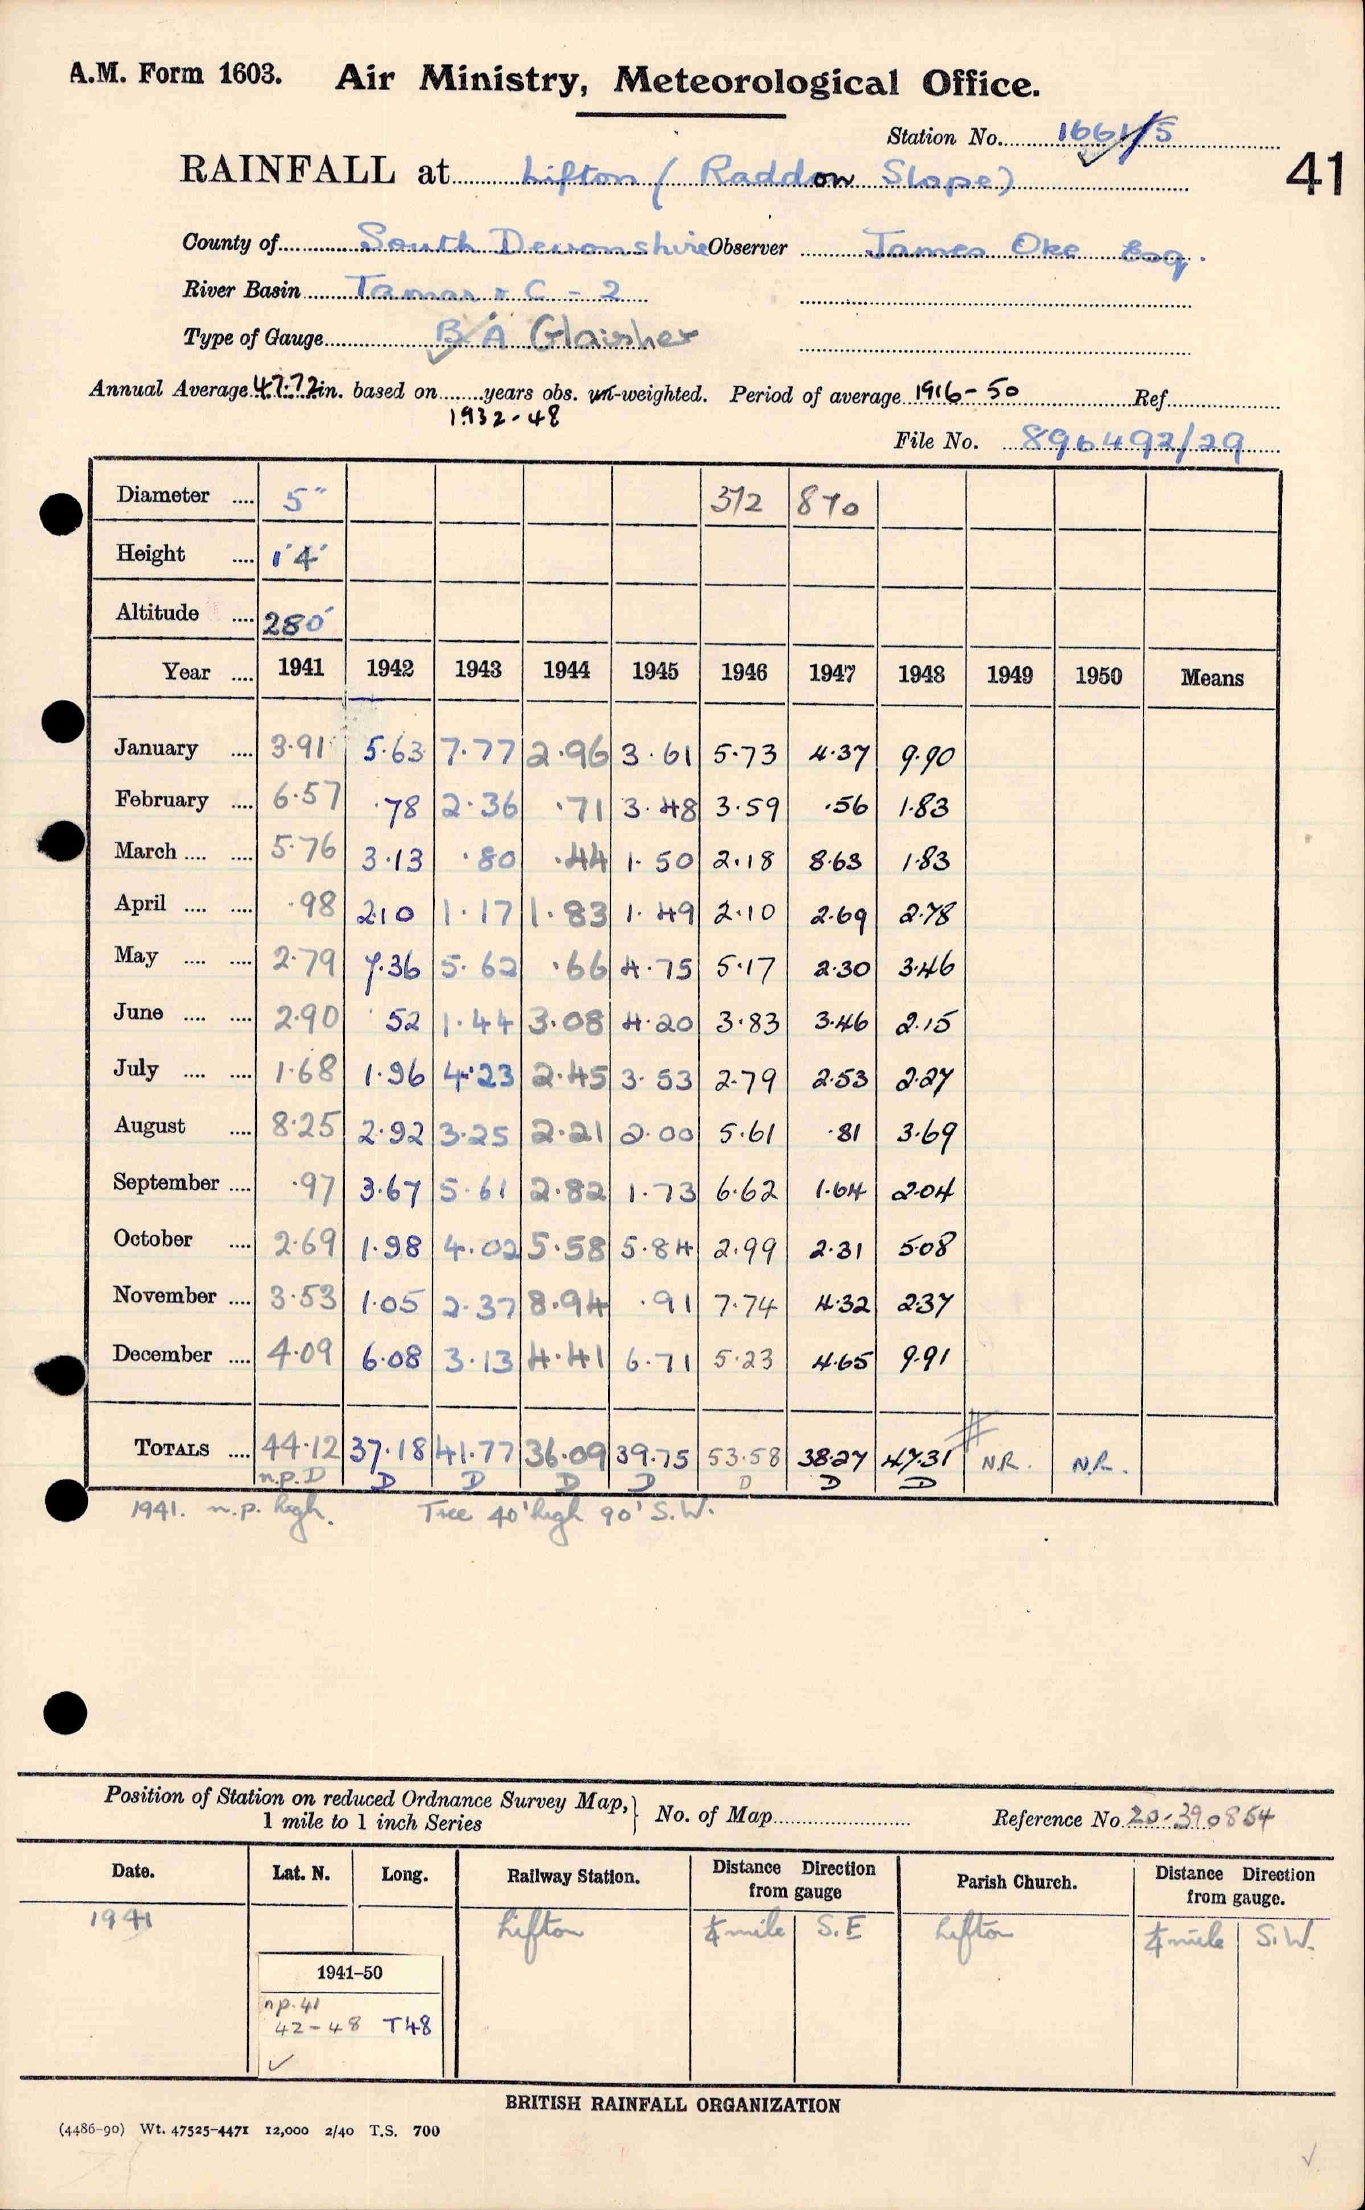 A.M. Form 1603. Air Ministry, Meteorological Office.
Station No. 1661/5
41
RAINFALL at Lifton (Raddon Slope)
County of South Devonshire Observer James Oke Esq.
River Basin Tamar & C - 2
Type of Gauge BA Glaisher
Annual Average 47.72 in. based on ........years obs. un-weighted. Period of average 1916-50 Ref.
1932-48
File No. 896492/29
Diameter .... 5" 372 870
Height .... 1'4"
Altitude .... 280'
Year .... 1941 1942 1943 1944 1945 1946 1947 1948 1949 1950 Means
January .... 3.91 5.63 7.77 2.96 3.61 5.73 4.37 9.90
February .... 6.57 .78 2.36 .71 3.48 3.59 .56 1.83
March .... .... 5.76 3.13 .80 .44 1.50 2.18 8.63 1.83
April .... .... .98 2.10 1.17 1.83 1.49 2.10 2.69 2.78
May .... .... 2.79 7.36 5.62 .66 4.75 5.17 2.30 3.46
June .... .... 2.90 .52 1.44 3.08 4.20 3.83 3.46 2.15
July .... .... 1.68 1.96 4.23 2.45 3.53 2.79 2.53 2.27
August .... 8.25 2.92 3.25 2.21 2.00 5.61 .81 3.69
September .... .97 3.67 5.61 2.82 1.73 6.62 1.64 2.04
October .... 2.69 1.98 4.02 5.58 5.84 2.99 2.31 5.08
November .... 3.53 1.05 2.37 8.94 .91 7.74 4.32 2.37
December .... 4.09 6.08 3.13 4.41 6.71 5.23 4.65 9.91
TOTALS .... 44.12 37.18 41.77 36.09 39.75 53.58 38.27 47.31 N.R. N.R.
n.p. D D D D D D D D
1941. n.p. high. Tree 40' high 90' S.W.
Position of Station on reduced Ordnance Survey Map,} No. of Map Reference No 20-390854
1 mile to 1 inch Series
Date. Lat. N. Long. Railway Station. Distance Direction from gauge Parish Church. Distance Direction from gauge.
1941 Lifton ¼ mile S.E Lifton ¼ mile S.W.
1941-50
n.p. 41
42-48 T48
BRITISH RAINFALL ORGANIZATION
(4486-90) Wt. 47525-4471 12,000 2/40 T.S. 700